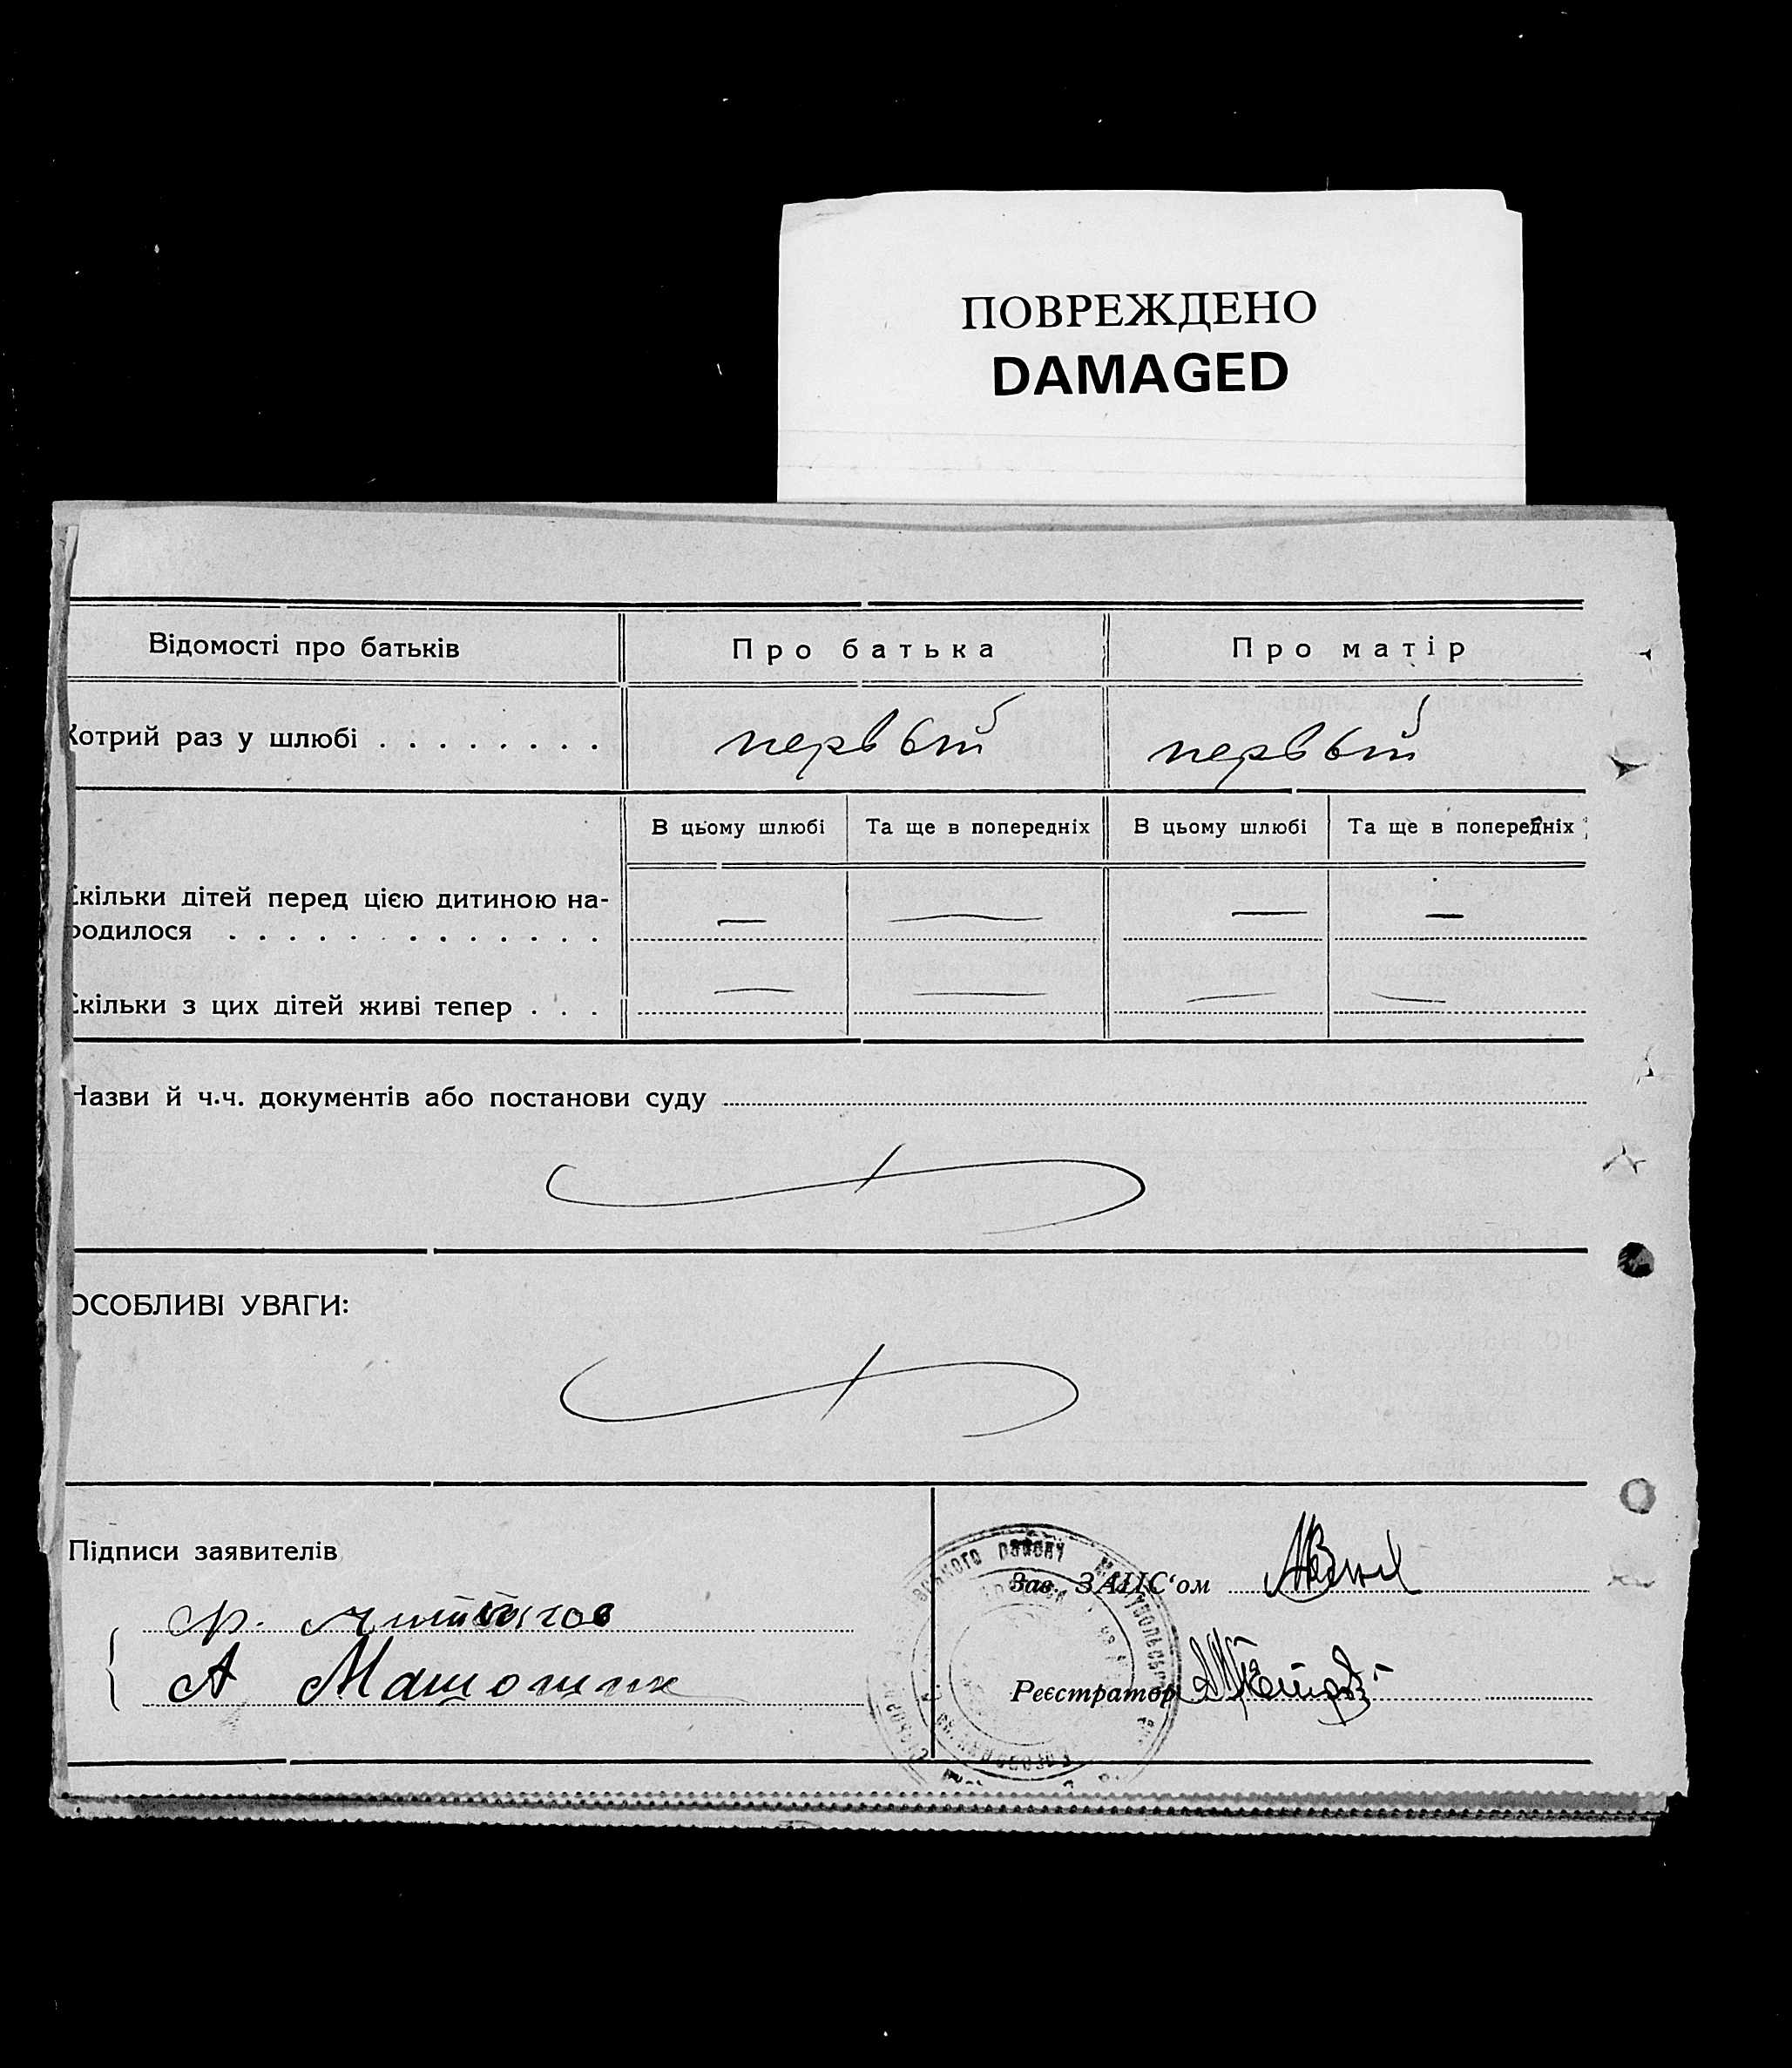 ПОВРЕЖДЕНО
DAMAGED
Відомості про батьків
Про батька
Про матір
Котрий раз у шлюбі . . . . . . . .
первый
первый
В цьому шлюбі
Та ще в попередніх
В цьому шлюбі
Та ще в попередніх
Скільки дітей перед цією дитиною на-
родилося . . . . . . . . . . . . .
— — — —
Скільки з цих дітей живі тепер . . .
— — — —
Назви й ч.ч. документів або постанови суду
ОСОБЛИВІ УВАГИ:
Підписи заявителів
Зав. ЗАЦС‘ом
А Машошик
Реєстратор
району